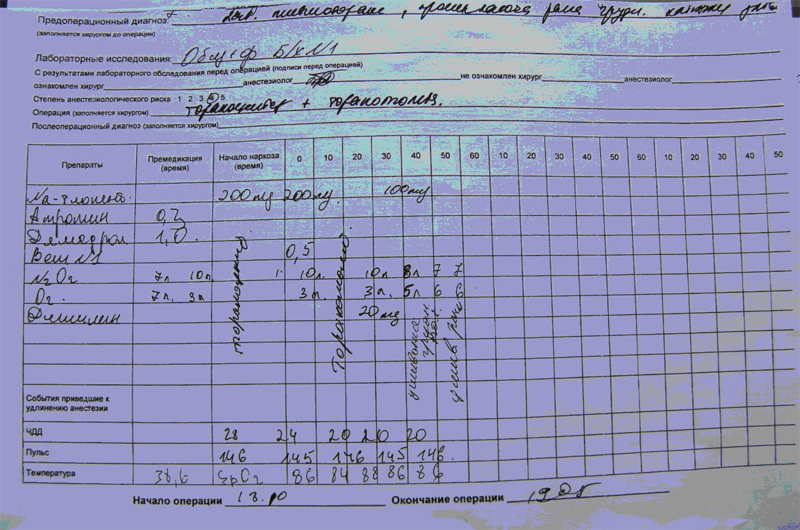 Предоперационный диагноз: пневмоторакс, проникающая рана грудн.
(заполняется хирургом до операции)
Лабораторные исследования:
С результатами лабораторного обследования перед операцией (подписи перед операцией)
ознакомлен хирург анестезиолог не ознакомлен хирург анестезиолог
Степень анестезиологического риска 1 2 3 4 5
Операция (заполняется хирургом) торакоцентез + торакотомия.
Послеоперационный диагноз (заполняется хирургом)
Препараты Премедикация (время) Начало наркоза (время) 0 10 20 30 40 50 60 10 20 30 40 50
200 mg 200 mg 100 mg
Атропин 0,2
Димедрол 1,0
0,5
N2O2 7л 10л. 10л. 10л 8л 7 7
O2. 7л. 3л 3л. 3л. 5л 6 5
Дитилин 20 mg
торакоцентез
Торакотомия
ушивание
События приведшие к удлинению анестезии
ЧДД 28 24 20 20 20
Пульс 146 145 146 145 146
Температура 38,6 SpO2 86 84 88 86
Начало операции 18.10 Окончание операции